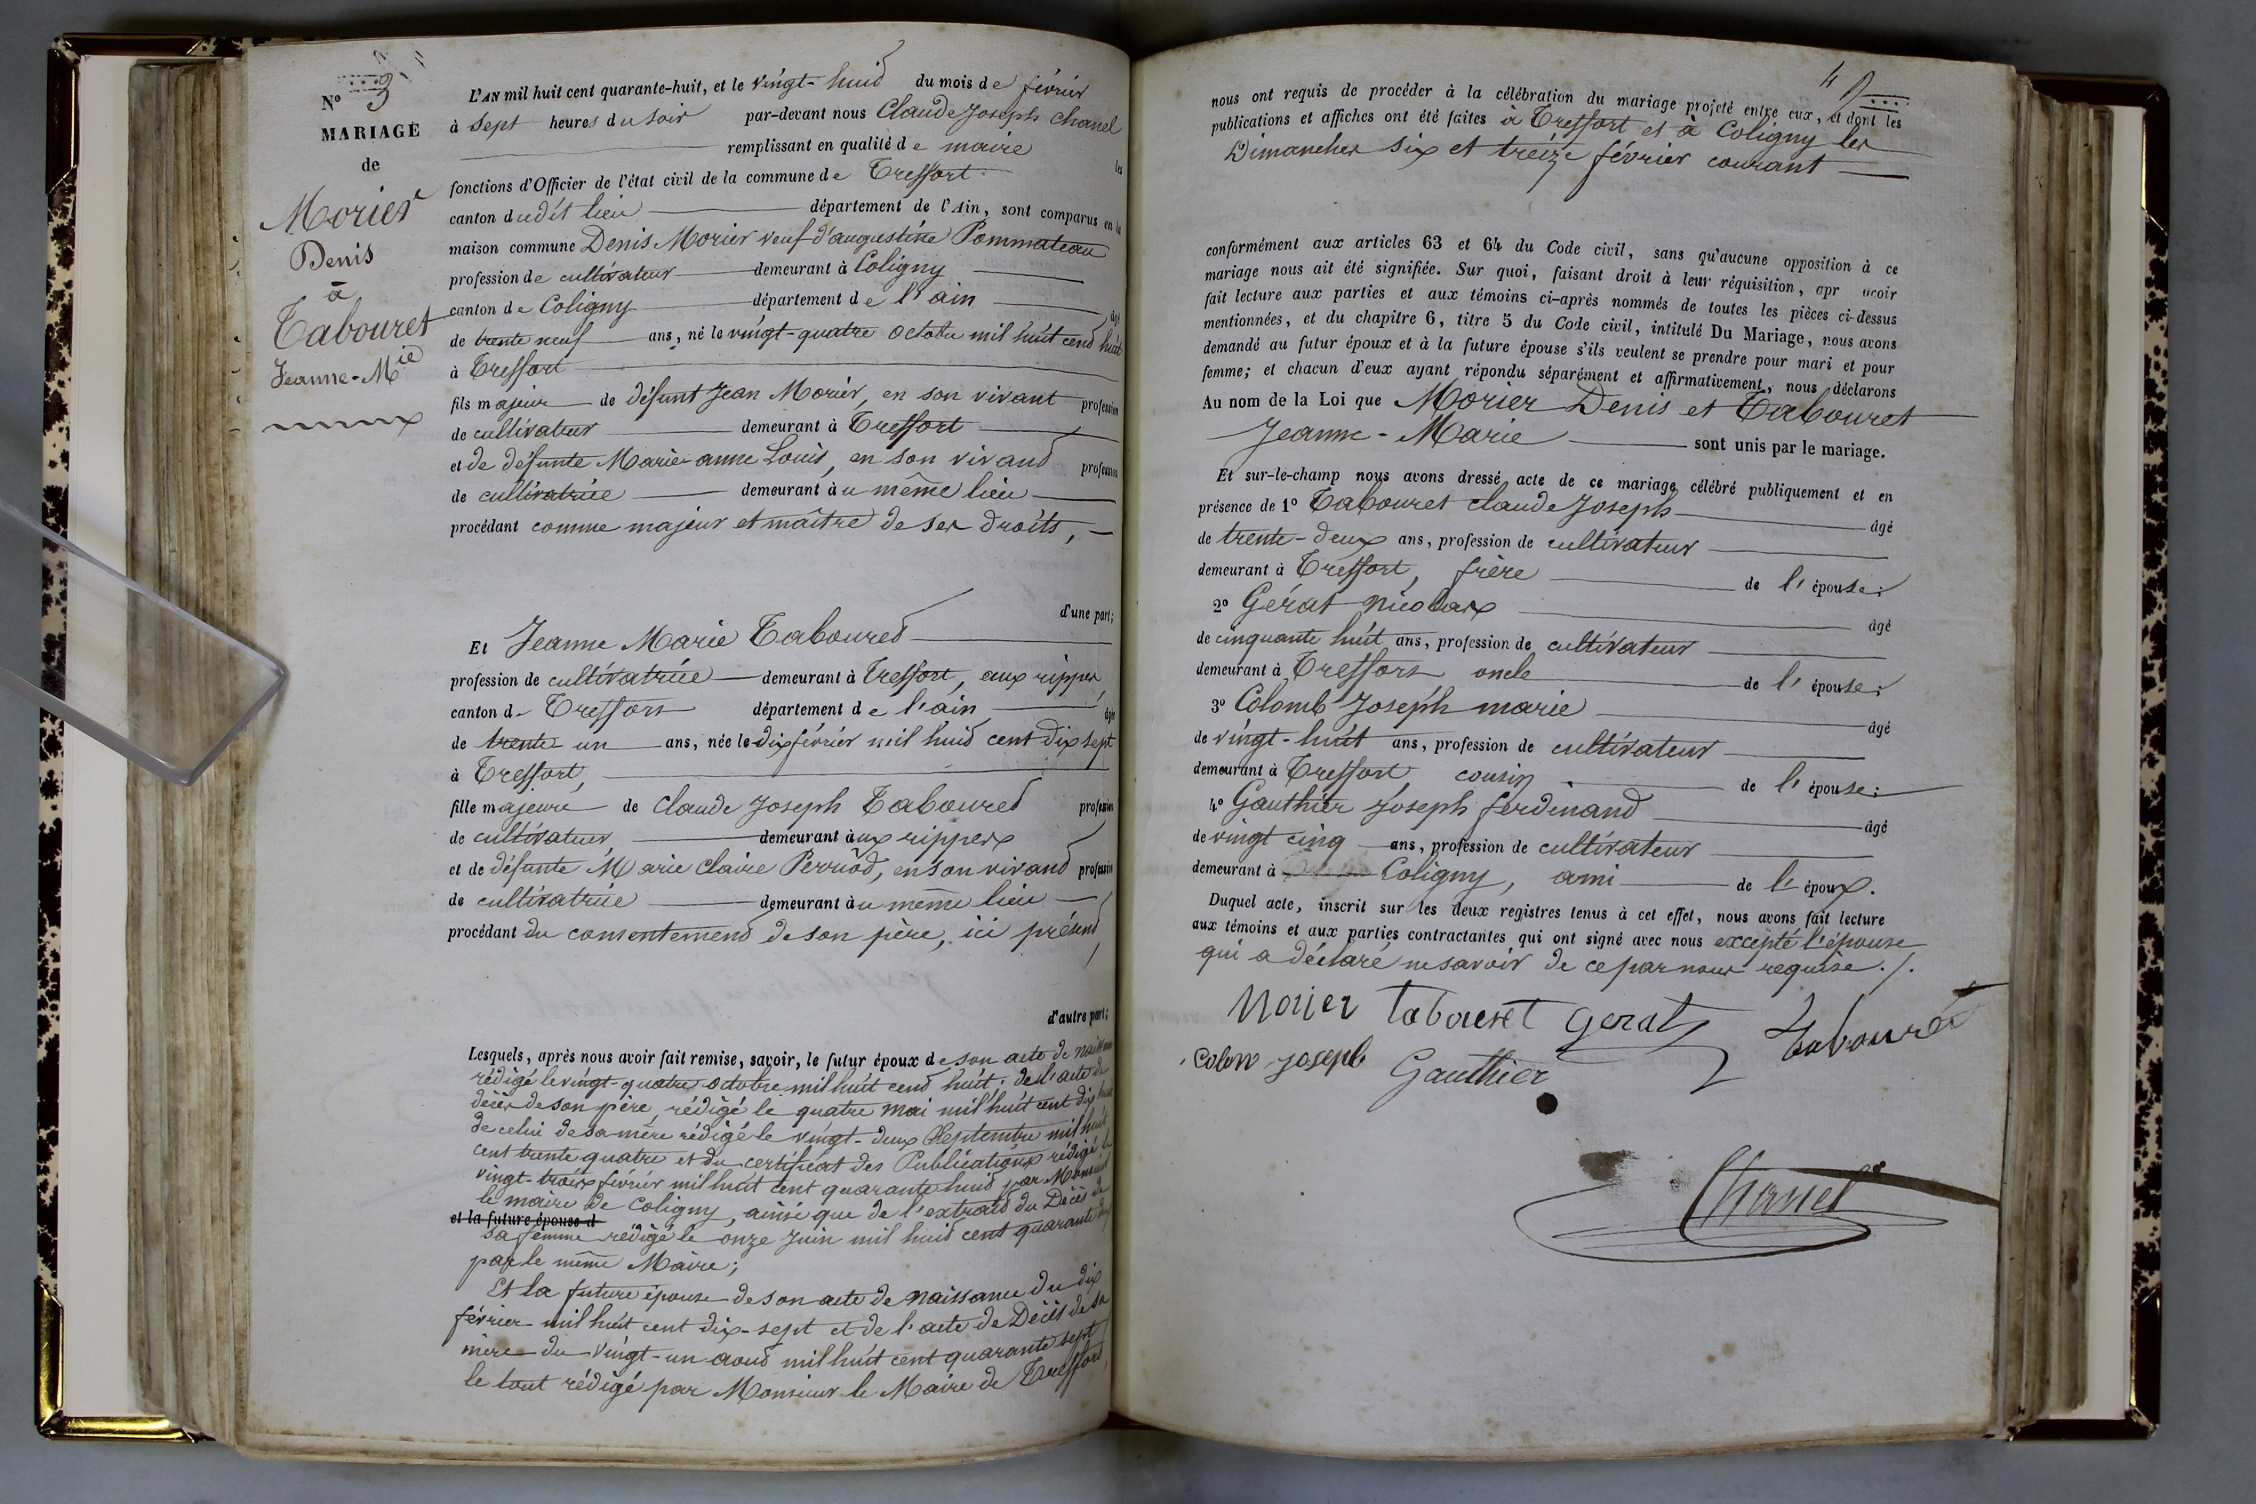 N° 3
MARIAGE
de
Morier
Denis
à
Tabouret
Jeanne-Mie
L'AN mil huit cent quarante-huit, et le vingt-huit du mois de février
à sept heures du soir par-devant nous Claude Joseph Chanel
remplissant en qualité de maire les
fonctions d'Officier de l'état civil de la commune de Treffort
canton dudit lieu département de l'Ain, sont comparus en la
maison commune Denis Morier veuf d'augustine Pommateau
profession de cultivateur demeurant à Coligny
canton de Coligny département de l'ain âgé
de trente neuf ans, né le vingt-quatre octobre mil huit cent huit
à Treffort
fils majeur de défunt Jean Morier, en son vivant profession
de cultivateur demeurant à Treffort
et de défunte Marie anne Louis, en son vivant profession
de cultivatrice demeurant au même lieu
procédant comme majeur et maître de ses droits,
d'une part;
Et Jeanne Marie Tabouret
profession de cultivatrice demeurant à Treffort, aux rippes
canton de Treffort département de l'ain âgée
de trente un ans, née le dix février mil huit cent dix sept
à Treffort,
fille majeure de Claude Joseph Tabouret profession
de cultivateur demeurant aux rippes
et de défunte Marie Claire Perruod, en son vivant profession
de cultivatrice demeurant au même lieu
procédant du consentement de son père, ici présent
d'autre part;
Lesquels, après nous avoir fait remise, savoir, le futur époux de son acte de naissance
rédigé le vingt-quatre octobre mil huit cent huit; de l'acte de
décès de son père, rédigé le quatre mai mil huit cent dix huit
de celui de sa mère rédigé le vingt-deux Septembre mil huit
cent trente quatre et du certificat des Publications rédigé le
vingt-trois février mil huit cent quarante huit par Monsieur
le maire de Coligny, ainsi que de l'extrait du Décès de
et la future épouse d
sa femme rédigé le onze Juin mil huit cent quarante
par le même Maire;
Et la future épouse de son acte de naissance du dix
février mil huit cent dix-sept et de l'acte de Décès de sa
mère du vingt-un aout mil huit cent quarante sept
le tout rédigé par Monsieur le Maire de Treffort
4
nous ont requis de procéder à la célébration du mariage projeté entre eux, et dont les
publications et affiches ont été faites à Treffort et à Coligny les
Dimanches six et treize février courant
conformément aux articles 63 et 64 du Code civil, sans qu'aucune opposition à ce
mariage nous ait été signifiée. Sur quoi, faisant droit à leur réquisition, apr avoir
fait lecture aux parties et aux témoins ci-après nommés de toutes les pièces ci-dessus
mentionnées, et du chapitre 6, titre 5 du Code civil, intitulé Du Mariage, nous avons
demandé au futur époux et à la future épouse s'ils veulent se prendre pour mari et pour
femme; et chacun d'eux ayant répondu séparément et affirmativement, nous déclarons
Au nom de la Loi que Morier Denis et Tabouret
Jeanne-Marie sont unis par le mariage.
Et sur-le-champ nous avons dressé acte de ce mariage célébré publiquement et en
présence de 1° Tabouret Claude Joseph âgé
de trente-deux ans, profession de cultivateur
demeurant à Treffort, frère de l'épouse;
2° Gérat Nicolas âgé
de cinquante huit ans, profession de cultivateur
demeurant à Treffort oncle de l'épouse;
3° Colomb Joseph marie âgé
de vingt-huit ans, profession de cultivateur
demeurant à Treffort cousin de l'épouse;
4° Gauthier Joseph ferdinand âgé
de vingt cinq ans, profession de cultivateur
demeurant à Coligny, ami de l'époux.
Duquel acte, inscrit sur les deux registres tenus à cet effet, nous avons fait lecture
aux témoins et aux parties contractantes qui ont signé avec nous excepté l'épouse
qui a déclaré ne savoir de ce par nous requise ./.
Morier Tabouret Gerat Tabouret
Colon Joseph Gauthier
Chanel